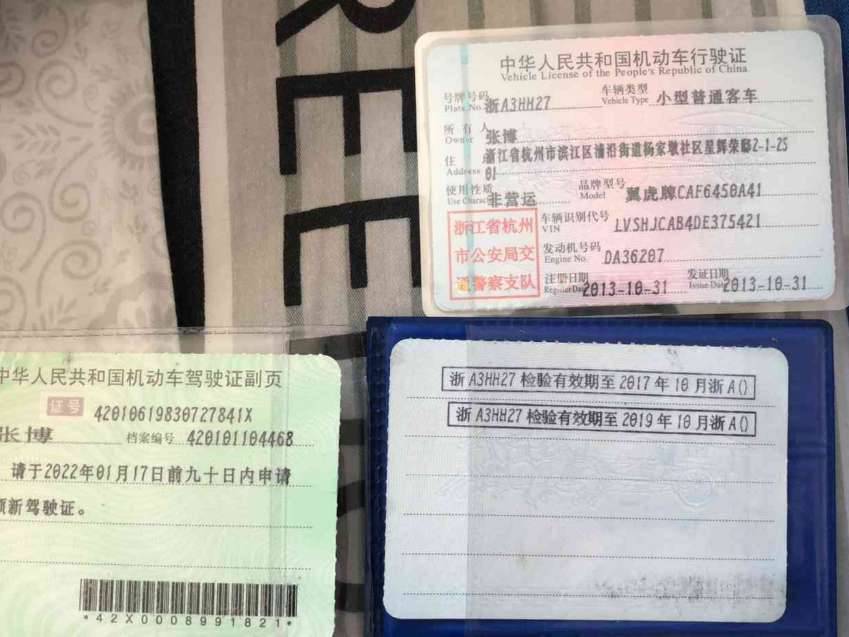 REE
中华人民共和国机动车行驶证
Vehicle License of the People's Republic of China
号牌号码 浙A3HH27 车辆类型 小型普通客车
Plate No. Vehicle Type
所有人 张博
Owner
住 浙江省杭州市滨江区浦沿街道杨家墩社区星辉荣邸2-1-2501
Address
使用性质 非营运 品牌型号 翼虎牌CAF6450A41
Use Character Model
浙江省杭州
市公安局交
通警察支队
车辆识别代号 LVSHJCAB4DE375421
VIN
发动机号码 DA36207
Engine No.
注册日期 2013-10-31 发证日期 2013-10-31
Register Date Issue Date
中华人民共和国机动车驾驶证副页
证号 42010619830727841X
张博 档案编号 420101104468
请于2022年01月17日前九十日内申请
领新驾驶证。
*42X0008991821*
浙A3HH27 检验有效期至2017年10月浙A()
浙A3HH27 检验有效期至2019年10月浙A()